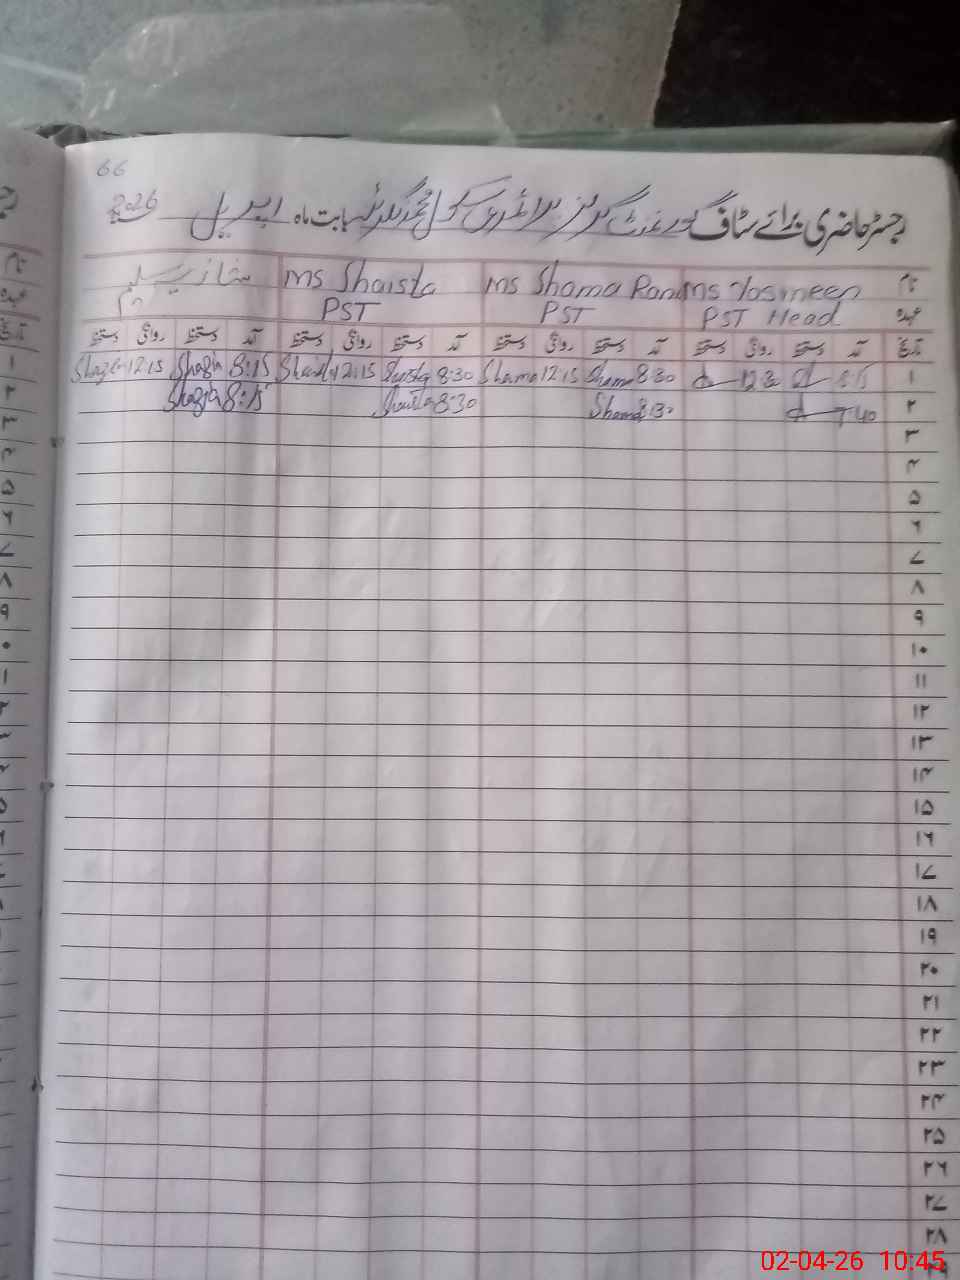 66
رجسٹر حاضری برائے سٹاف گورنمنٹ گرلز پرائمری سکول بابت ماہ اپریل 2026
نام Ms Yasmeen Ms Shama Rani Ms Shaista شازیہ
عہدہ PST Head PST PST
تاریخ آمد دستخط روانگی دستخط آمد دستخط روانگی دستخط آمد دستخط روانگی دستخط آمد دستخط روانگی دستخط
۱ 8:30 Shama 12:15 Shama 8:30 12:15 8:15 Shazia 12:15
۲ 8:30 Shama 8:30 Shaista 8:15 Shazia
۳
۴
۵
۶
۷
۸
۹
۱۰
۱۱
۱۲
۱۳
۱۴
۱۵
۱۶
۱۷
۱۸
۱۹
۲۰
۲۱
۲۲
۲۳
۲۴
۲۵
۲۶
۲۷
۲۸
02-04-26 10:45